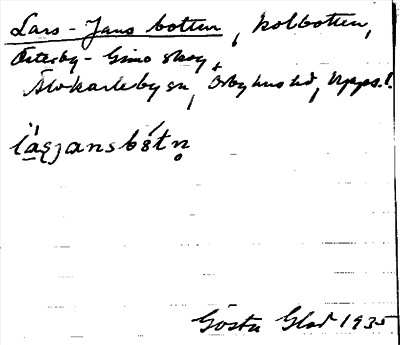 Lars-Jans botten, kolbotten,
Österby-Gimo skog,
Älvkarleby sn, Örbyhus hd, Upps. l.
lasjansbótn̥
Gösta Glad 1935